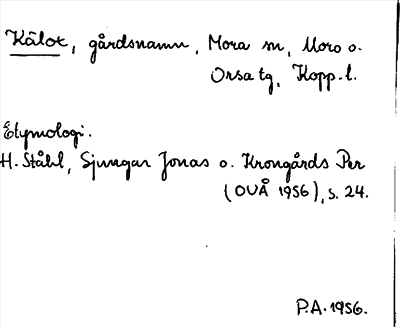 Kålot, gårdsnamn, Mora sn, Mora o.
Orsa tg, Kopp. l.
Etymologi.
H. Ståhl, Sjungar Jonas o. Krongårds Per
(OUÅ 1956), s. 24.
P.A. 1956.